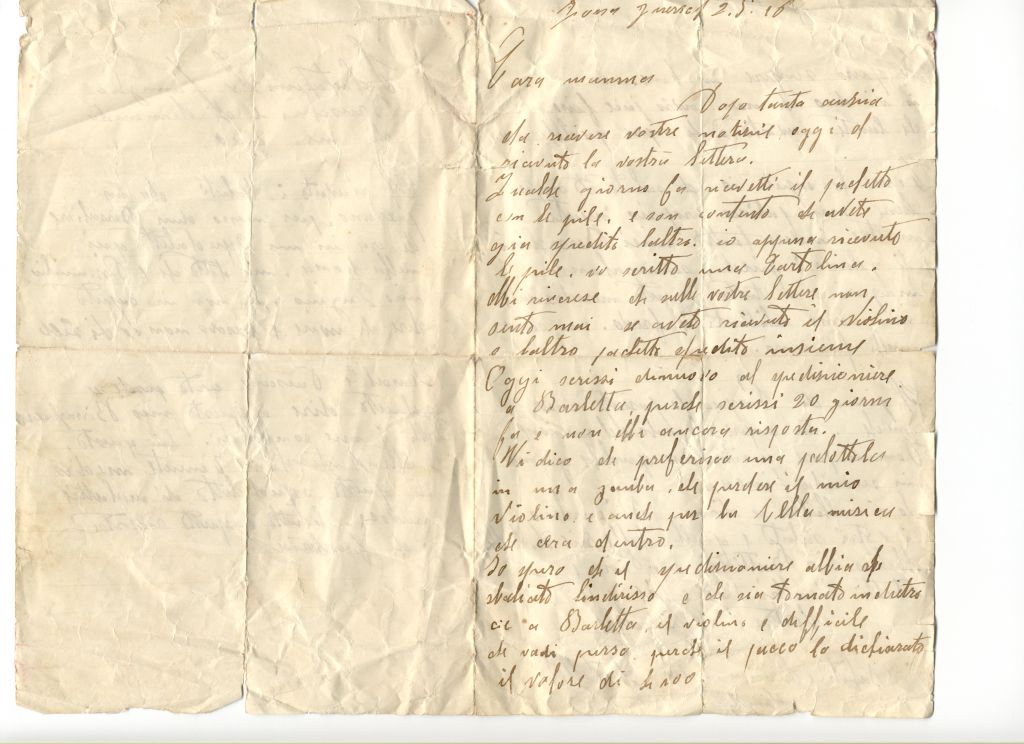 Zona Guerra 2.5.16
Cara mamma
Dopo tanta ansia
da ricevere vostre notizie, oggi o
ricevuto la vostra lettera.
Qualche giorno fa ricevetti il pachetto
con le pile, e son contento che avete
gia spedito laltro. io appena ricevuto
le pile, vo scritto una Cartolina.
Mi rincrese che sulle vostre lettere non
sento mai se avete ricevuto il violino
o laltro pachetto spedito insieme
Oggi scrissi dinuovo al spedisioniere
a Barletta, perche scrissi 20 giorni
fa e non ebbi ancora risposta.
Vi dico che preferisco una palottola
in una gamba, che perdere il mio
violino, e anche per la bella musica
che cera dentro.
Io spero che il spedisioniere abbia
sbaliato lindirisso e che sia tornato indietro
a Barletta, il violino e difficile
che vadi perso perche il pacco lo dichiarato
il valore di L 100